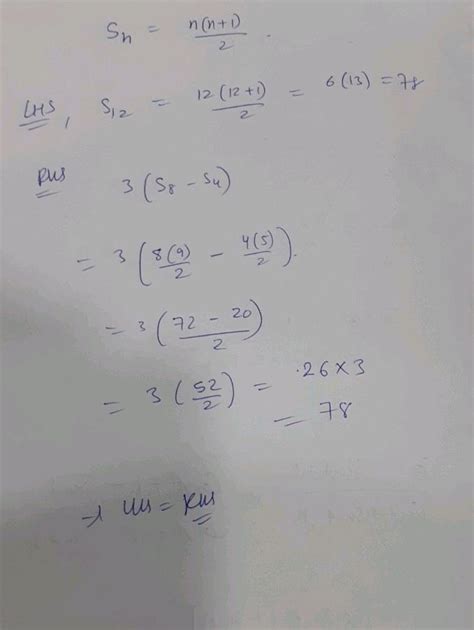 Sn = n(n+1)/2 .
LHS, S12 = 12(12+1)/2 = 6(13) = 78
RHS 3(S8 - S4)
= 3(8(9)/2 - 4(5)/2).
= 3(72 - 20/2)
= 3(52/2) = .26×3
= 78
→ LHS = RHS